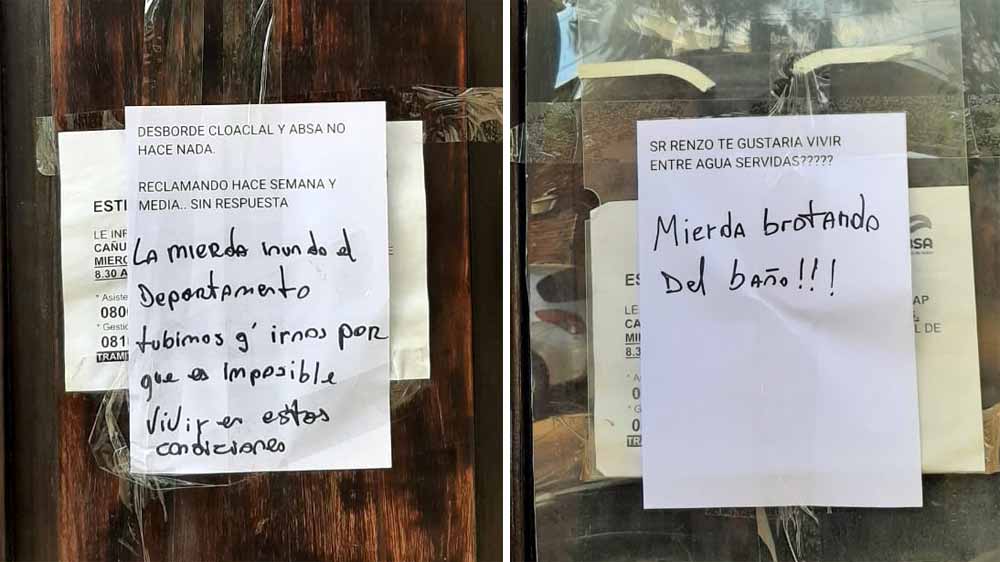 DESBORDE CLOACLAL Y ABSA NO
HACE NADA.
RECLAMANDO HACE SEMANA Y
MEDIA.. SIN RESPUESTA
La mierda inundo el
Departamento
tubimos q' irnos por
que es imposible
vivir en estas
condiciones
ESTI
LE INF
CAÑU
MIERC
8.30 A
* Asiste
080
* Gestic
081
TRAMI
SR RENZO TE GUSTARIA VIVIR
ENTRE AGUA SERVIDAS?????
Mierda brotando
Del baño!!!
BSA
ES
LE
AP
CA
S,
MI
L DE
8.3
* A
0
* G
0
TRA